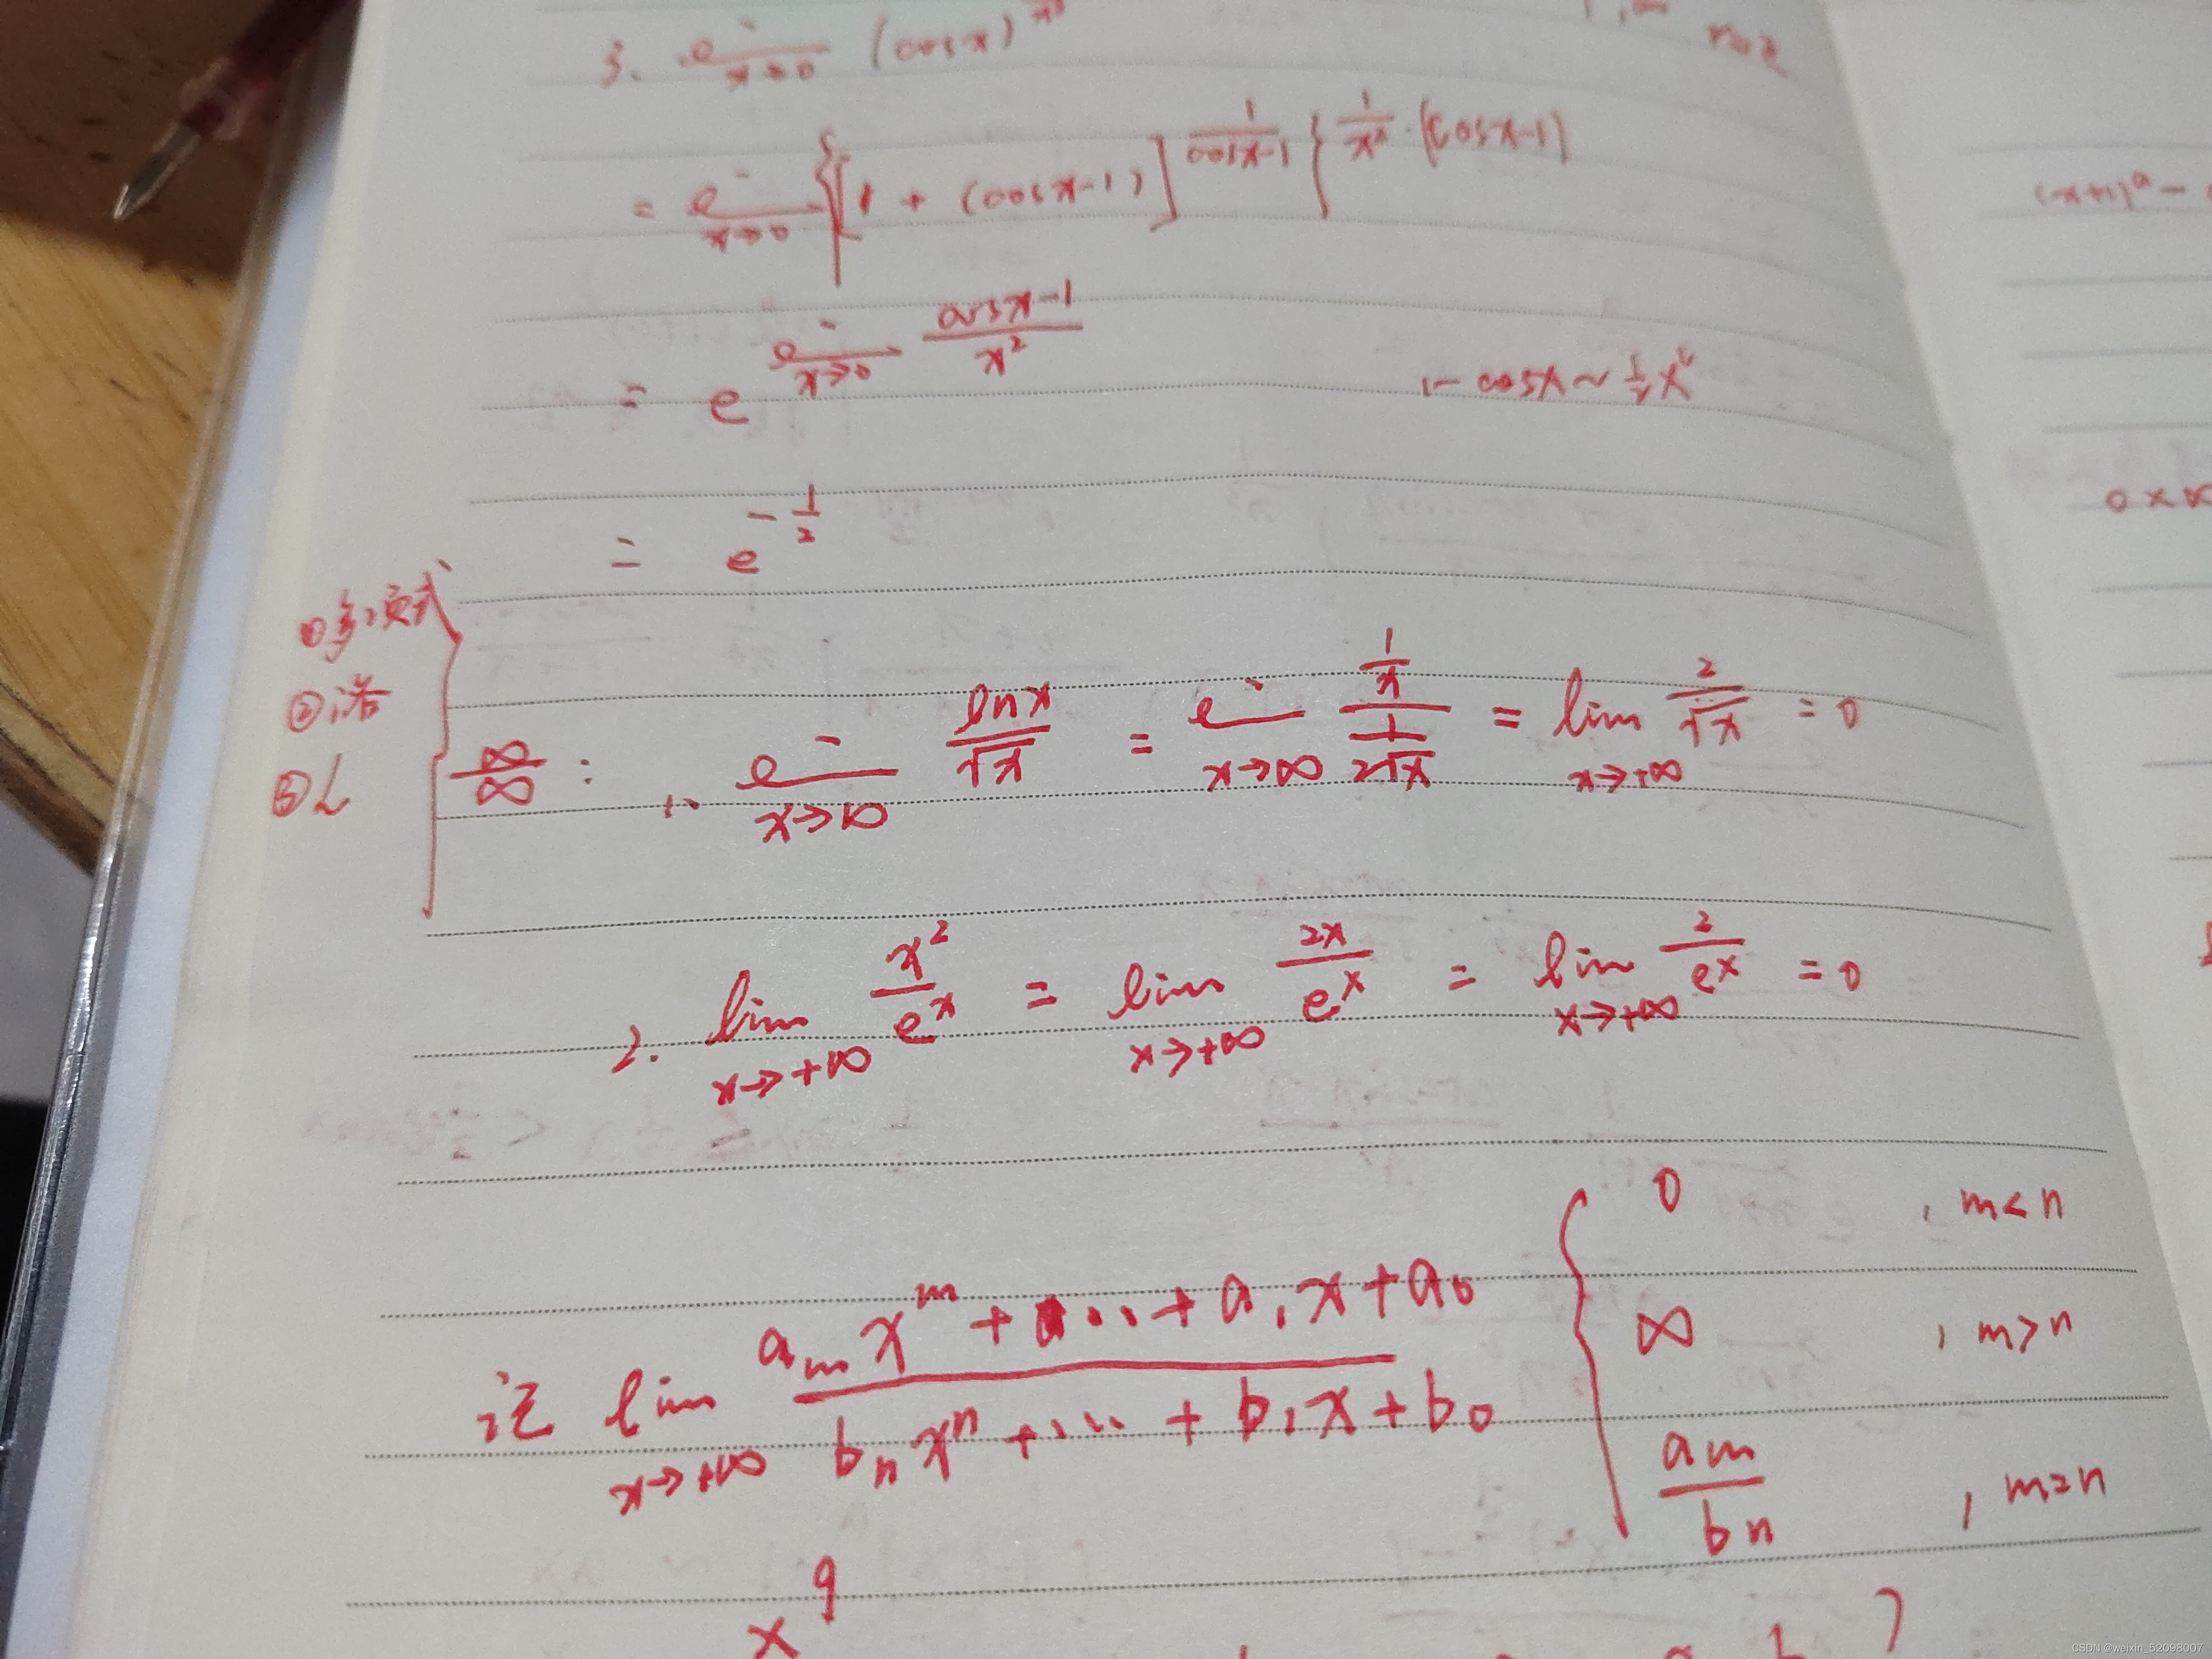 3. lim x→0 (cosx)
= lim x→0 {[1 + (cosx-1)]^(1/(cosx-1))}^(1/x² · (cosx-1))
= e^(lim x→0 (cosx-1)/x²)
1-cosx ~ ½x²
= e^(-1/2)
①多项式
②洛
③L
∞/∞ : 1. lim x→∞ lnx/√x = lim x→∞ (1/x)/(1/(2√x)) = lim x→+∞ 2/√x = 0
2. lim x→+∞ x²/e^x = lim x→+∞ 2x/e^x = lim x→+∞ 2/e^x = 0
记 lim x→+∞ (a_m x^m + ... + a_1 x + a_0)/(b_n x^n + ... + b_1 x + b_0) {
0 , m<n
∞ , m>n
a_m/b_n , m=n
x^9
(-x+1)^a -
0×∞
CSDN @weixin_52098007